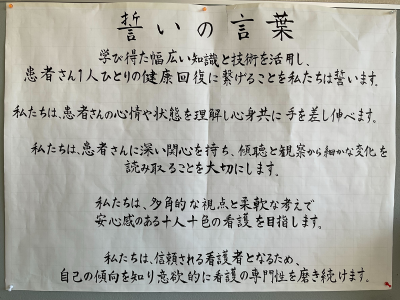 誓いの言葉
学び得た幅広い知識と技術を活用し、
患者さん1人ひとりの健康回復に繋げることを私たちは誓います。
私たちは、患者さんの心情や状態を理解し心身共に手を差し伸べます。
私たちは、患者さんに深い関心を持ち、傾聴と観察から細かな変化を
読み取ることを大切にします。
私たちは、多角的な視点と柔軟な考えで
安心感のある十人十色の看護を目指します。
私たちは、信頼される看護者となるため、
自己の傾向を知り意欲的に看護の専門性を磨き続けます。